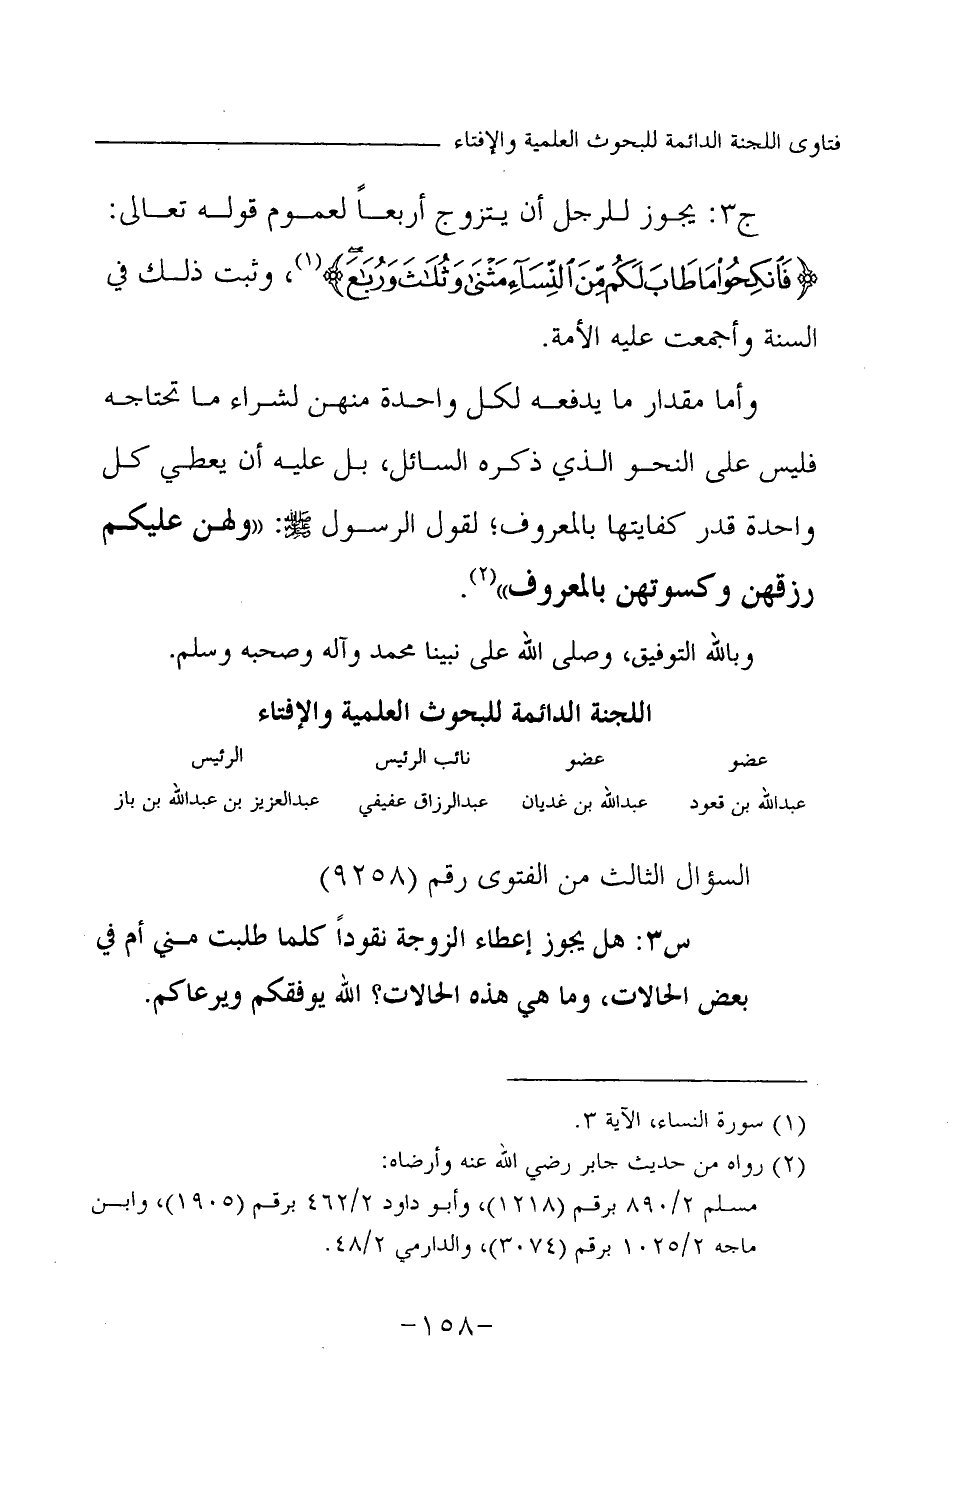 فتاوى اللجنة الدائمة للبحوث العلمية والإفتاء
ج٣: يجوز للرجل أن يتزوج أربعاً لعموم قوله تعالى:
﴿فَٱنكِحُوا۟ مَا طَابَ لَكُم مِّنَ ٱلنِّسَآءِ مَثْنَىٰ وَثُلَٰثَ وَرُبَٰعَ﴾(١)، وثبت ذلك في
السنة وأجمعت عليه الأمة.
وأما مقدار ما يدفعه لكل واحدة منهن لشراء ما تحتاجه
فليس على النحو الذي ذكره السائل، بل عليه أن يعطي كل
واحدة قدر كفايتها بالمعروف؛ لقول الرسول ﷺ: «ولهن عليكم
رزقهن وكسوتهن بالمعروف»(٢).
وبالله التوفيق، وصلى الله على نبينا محمد وآله وصحبه وسلم.
اللجنة الدائمة للبحوث العلمية والإفتاء
عضو عضو نائب الرئيس الرئيس
عبدالله بن قعود عبدالله بن غديان عبدالرزاق عفيفي عبدالعزيز بن عبدالله بن باز
السؤال الثالث من الفتوى رقم (٩٢٥٨)
س٣: هل يجوز إعطاء الزوجة نقوداً كلما طلبت مني أم في
بعض الحالات، وما هي هذه الحالات؟ الله يوفقكم ويرعاكم.
(١) سورة النساء، الآية ٣.
(٢) رواه من حديث جابر رضي الله عنه وأرضاه:
مسلم ٨٩٠/٢ برقم (١٢١٨)، وأبو داود ٤٦٢/٢ برقم (١٩٠٥)، وابن
ماجه ١٠٢٥/٢ برقم (٣٠٧٤)، والدارمي ٤٨/٢.
-١٥٨-